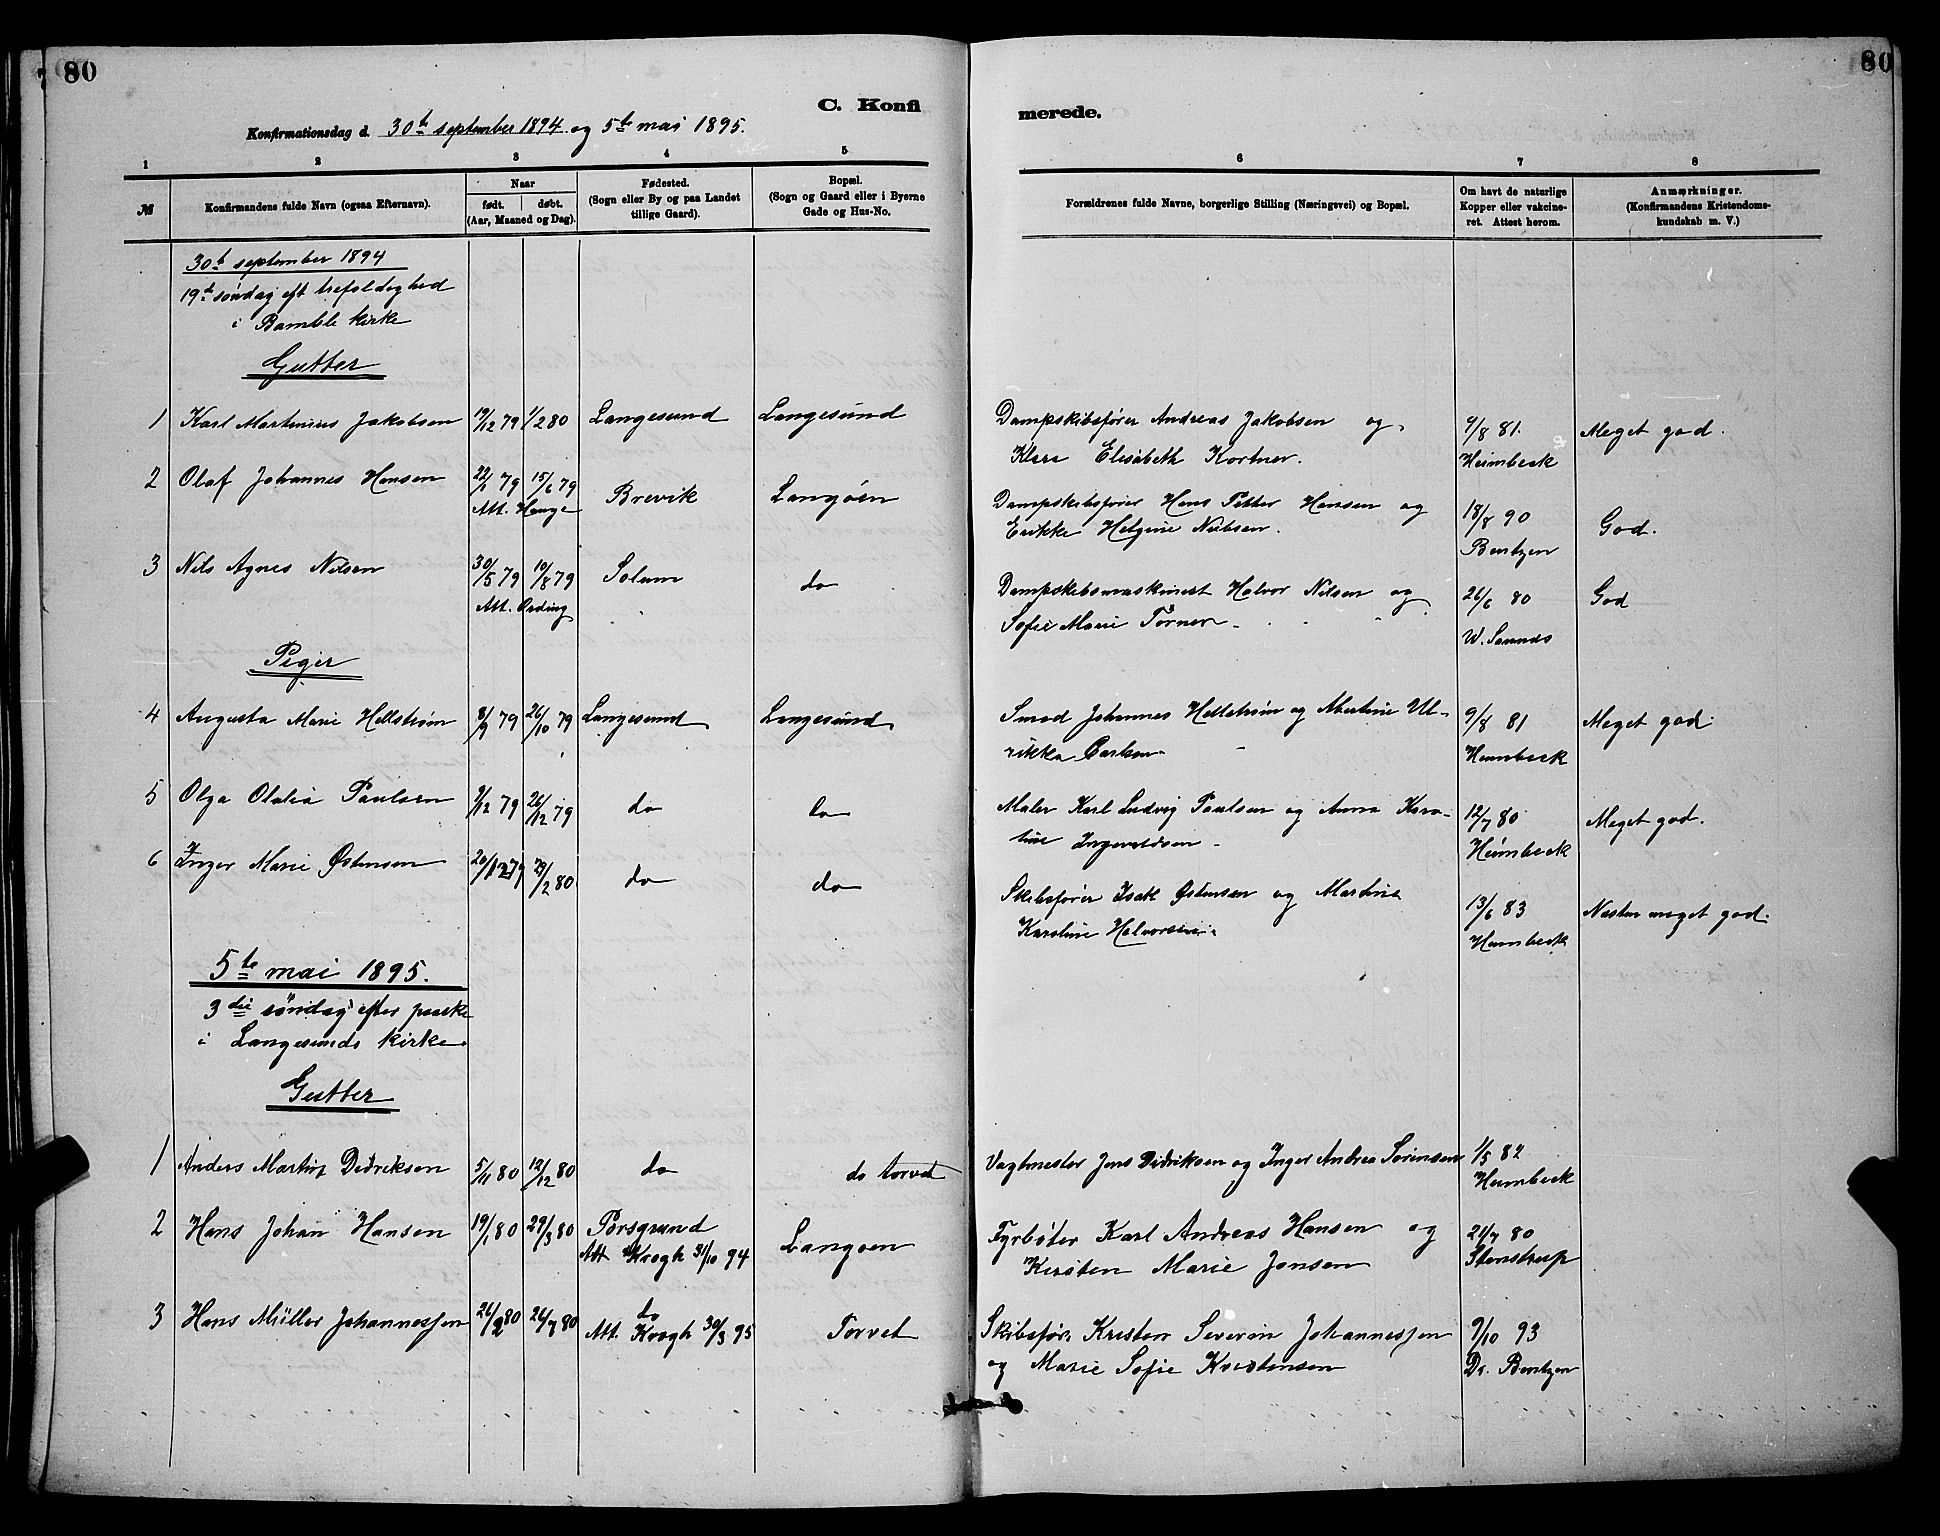 80
80
C. Konfi
merede.
Konfirmationsdag d. 30te september 1894 og 5te mai 1895.
1 2 3 4 5 6 7 8
№
Konfirmandens fulde Navn (ogsaa Efternavn).
Naar
født. døbt.
(Aar, Maaned og Dag).
Fødested.
(Sogn eller By og paa Landet
tillige Gaard).
Bopæl.
(Sogn og Gaard eller i Byerne
Gade og Hus-No.
Forældrenes fulde Navne, borgerlige Stilling (Næringsvei) og Bopæl.
Om havt de naturlige
Kopper eller vakcine-
ret. Attest herom.
Anmærkninger.
(Konfirmandens Kristendoms-
kundskab m. V.)
30te september 1894
19te søndag eft trefoldighed
i Bamble kirke
Gutter
1 Karl Martinius Jakobsen 19/12 79 1/2 80 Langesund Langesund Dampskibsfører Andreas Jakobsen og 9/8 81. Meget god.
Klara Elisabeth Kortner. Heimbeck
2 Olaf Johannes Hansen 22/1 79 15/6 79 Brevik Langøen Dampskibsfører Hans Petter Hansen og 18/8 90 God.
Att. Hauge Erikke Helgine Nielsen. Bentzen
3 Nils Agnes Nilsen 30/5 79 10/8 79 Solum do Dampskibsmaskinist Halvor Nilsen og 26/6 80 God
Att. Ording Sofie Marie Tørner W. Saunds
Piger
4 Augusta Marie Hellstrøm 8/9 79 26/10 79 Langesund Langesund Smed Johannes Hellstrøm og Albertine Ul- 9/8 81 Meget god.
rikka Carlson Heimbeck
5 Olga Olalia Paulsen 9/12 79 26/12 79 do do Maler Karl Ludvig Paulsen og Anna Karo- 12/7 80 Meget god.
line Ingevaldsen Heimbeck
6 Inger Marie Østensen 20/12 79 29/2 80 do do Skibsfører Isak Østensen og Martine 13/6 83 Næsten meget god.
Karoline Halvorsen Heimbeck
5te mai 1895.
3die søndag efter paaske
i Langesunds kirke
Gutter
1 Anders Martin Didriksen 5/11 80 12/12 80 do do torvet Vagtmester Jens Didriksen og Inger Andrea Sørensen 1/5 82
Heimbeck
2 Hans Johan Hansen 19/1 80 29/3 80 Porsgrund Langøen Fyrbøter Karl Andreas Hansen og 21/7 80
Att Krogh 31/10 94 Kirsten Marie Jansen Stenstrup
3 Hans Müller Johannessen 26/2 80 26/7 80 do Torvet Skibsfør. Kristen Severin Johannessen 9/10 93
Att. Krogh 30/3 95 og Marie Sofie Kristensen Dr. Bentzen